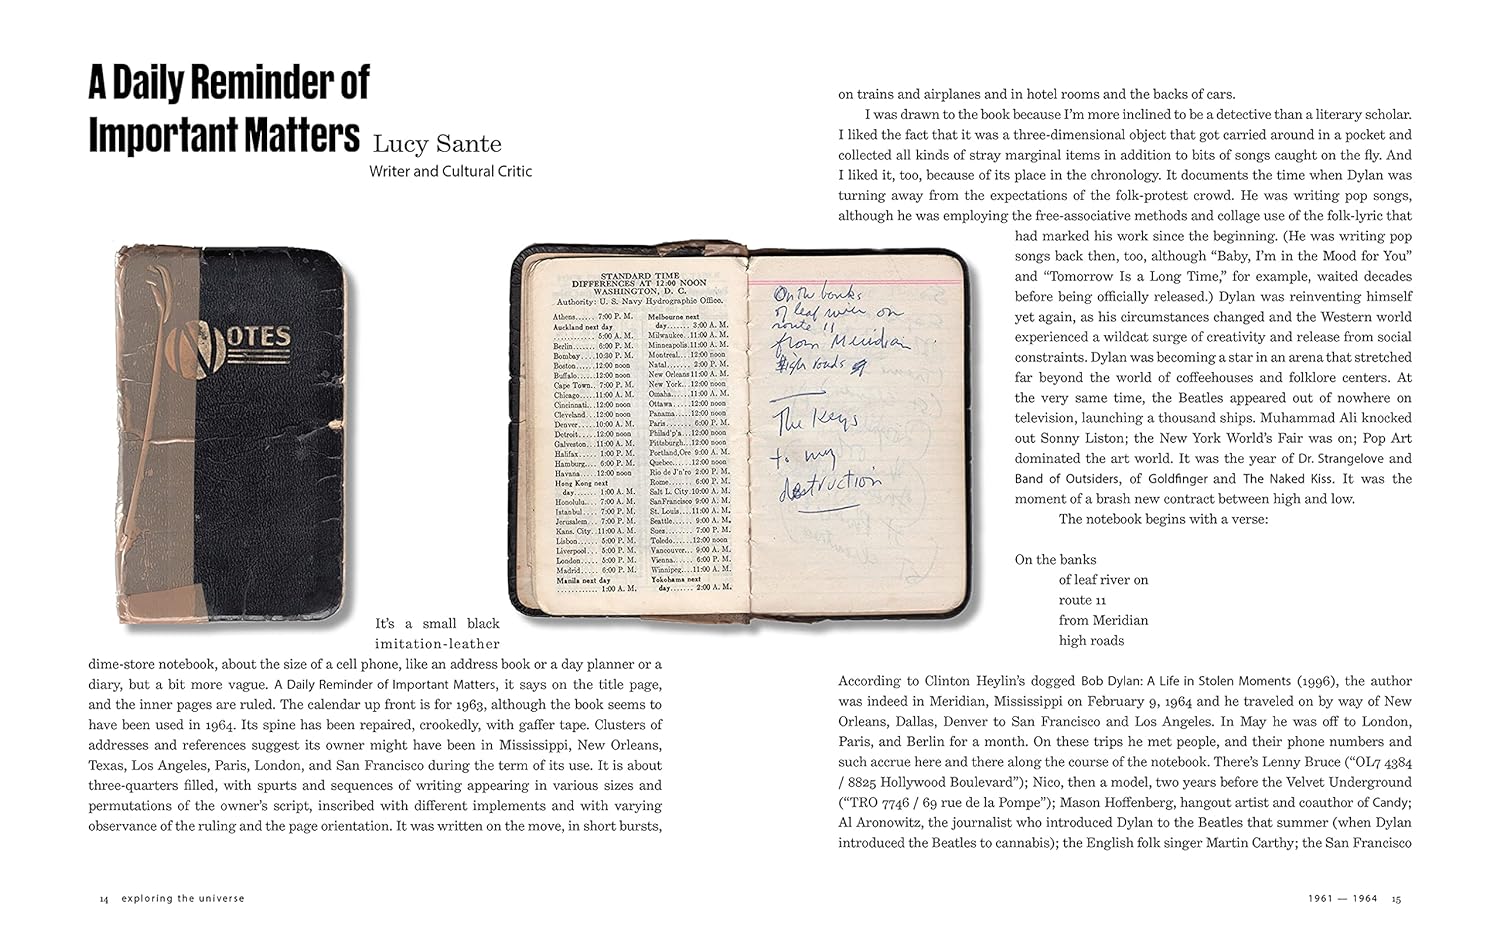 A Daily Reminder of
Important Matters
Lucy Sante
Writer and Cultural Critic
NOTES
It’s a small black
imitation-leather
dime-store notebook, about the size of a cell phone, like an address book or a day planner or a
diary, but a bit more vague. A Daily Reminder of Important Matters, it says on the title page,
and the inner pages are ruled. The calendar up front is for 1963, although the book seems to
have been used in 1964. Its spine has been repaired, crookedly, with gaffer tape. Clusters of
addresses and references suggest its owner might have been in Mississippi, New Orleans,
Texas, Los Angeles, Paris, London, and San Francisco during the term of its use. It is about
three-quarters filled, with spurts and sequences of writing appearing in various sizes and
permutations of the owner’s script, inscribed with different implements and with varying
observance of the ruling and the page orientation. It was written on the move, in short bursts,
14 exploring the universe
STANDARD TIME
DIFFERENCES AT 12:00 NOON
WASHINGTON, D. C.
Authority: U. S. Navy Hydrographic Office.
Athens...... 7:00 P. M.
Auckland next day
............ 5:00 A. M.
Berlin....... 6:00 P. M.
Bombay....10:30 P. M.
Boston......12:00 noon
Buffalo......12:00 noon
Cape Town.. 7:00 P. M.
Chicago.....11:00 A. M.
Cincinnati...12:00 noon
Cleveland...12:00 noon
Denver......10:00 A. M.
Detroit......12:00 noon
Galveston...11:00 A. M.
Halifax...... 1:00 P. M.
Hamburg.... 6:00 P. M.
Havana......12:00 noon
Hong Kong next
day....... 1:00 A. M.
Honolulu.... 7:00 A. M.
Istanbul..... 7:00 P. M.
Jerusalem... 7:00 P. M.
Kans. City..11:00 A. M.
Lisbon...... 5:00 P. M.
Liverpool... 5:00 P. M.
London..... 5:00 P. M.
Madrid..... 6:00 P. M.
Manila next day
............ 1:00 A. M.
Melbourne next
day....... 3:00 A. M.
Milwaukee..11:00 A. M.
Minneapolis 11:00 A. M.
Montreal...12:00 noon
Natal....... 2:00 P. M.
New Orleans 11:00 A. M.
New York...12:00 noon
Omaha......11:00 A. M.
Ottawa.....12:00 noon
Panama.....12:00 noon
Paris........ 6:00 P. M.
Philad'p'a...12:00 noon
Pittsburgh..12:00 noon
Portland,Ore 9:00 A. M.
Quebec......12:00 noon
Rio de J'n'ro 2:00 P. M.
Rome....... 6:00 P. M.
Salt L. City.10:00 A. M.
SanFrancisco 9:00 A. M.
St. Louis....11:00 A. M.
Seattle...... 9:00 A. M.
Suez........ 7:00 P. M.
Toledo......12:00 noon
Vancouver... 9:00 A. M.
Vienna...... 6:00 P. M.
Winnipeg...11:00 A. M.
Yokohama next
day....... 2:00 A. M.
On the banks
of leaf river on
route 11
from Meridian
high roads of
The Keys
to my
destruction
on trains and airplanes and in hotel rooms and the backs of cars.
I was drawn to the book because I’m more inclined to be a detective than a literary scholar.
I liked the fact that it was a three-dimensional object that got carried around in a pocket and
collected all kinds of stray marginal items in addition to bits of songs caught on the fly. And
I liked it, too, because of its place in the chronology. It documents the time when Dylan was
turning away from the expectations of the folk-protest crowd. He was writing pop songs,
although he was employing the free-associative methods and collage use of the folk-lyric that
had marked his work since the beginning. (He was writing pop
songs back then, too, although “Baby, I’m in the Mood for You”
and “Tomorrow Is a Long Time,” for example, waited decades
before being officially released.) Dylan was reinventing himself
yet again, as his circumstances changed and the Western world
experienced a wildcat surge of creativity and release from social
constraints. Dylan was becoming a star in an arena that stretched
far beyond the world of coffeehouses and folklore centers. At
the very same time, the Beatles appeared out of nowhere on
television, launching a thousand ships. Muhammad Ali knocked
out Sonny Liston; the New York World’s Fair was on; Pop Art
dominated the art world. It was the year of Dr. Strangelove and
Band of Outsiders, of Goldfinger and The Naked Kiss. It was the
moment of a brash new contract between high and low.
The notebook begins with a verse:
On the banks
of leaf river on
route 11
from Meridian
high roads
According to Clinton Heylin’s dogged Bob Dylan: A Life in Stolen Moments (1996), the author
was indeed in Meridian, Mississippi on February 9, 1964 and he traveled on by way of New
Orleans, Dallas, Denver to San Francisco and Los Angeles. In May he was off to London,
Paris, and Berlin for a month. On these trips he met people, and their phone numbers and
such accrue here and there along the course of the notebook. There’s Lenny Bruce (“OL7 4384
/ 8825 Hollywood Boulevard”); Nico, then a model, two years before the Velvet Underground
(“TRO 7746 / 69 rue de la Pompe”); Mason Hoffenberg, hangout artist and coauthor of Candy;
Al Aronowitz, the journalist who introduced Dylan to the Beatles that summer (when Dylan
introduced the Beatles to cannabis); the English folk singer Martin Carthy; the San Francisco
1961 — 1964 15